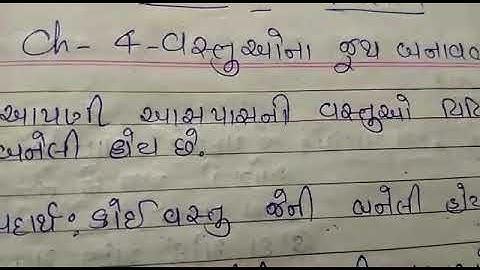 Ch - 4 - વસ્તુઓના જૂથ બનાવવા
આપણી આસપાસની વસ્તુઓ
બનેલી હોય છે.
પદાર્થ : કોઈ વસ્તુ જેની બનેલી હોય